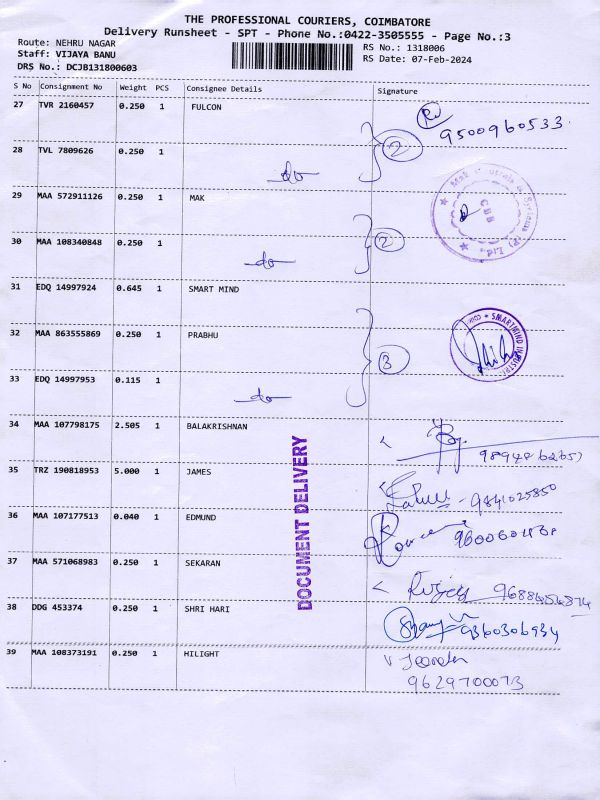 THE PROFESSIONAL COURIERS, COIMBATORE
Delivery Runsheet - SPT - Phone No.:0422-3505555 - Page No.:3
Route: NEHRU NAGAR
Staff: VIJAYA BANU
DRS No.: DCJB131800603
RS No.: 1318006
RS Date: 07-Feb-2024
S No Consignment No Weight PCS Consignee Details Signature
27 TVR 2160457 0.250 1 FULCON
9500960533
28 TVL 7809626 0.250 1
do 2
29 MAA 572911126 0.250 1 MAK
30 MAA 108340848 0.250 1
do 2
CBB
31 EDQ 14997924 0.645 1 SMART MIND
32 MAA 863555869 0.250 1 PRABHU
SMARTMIND
33 EDQ 14997953 0.115 1
do 3
34 MAA 107798175 2.505 1 BALAKRISHNAN
35 TRZ 190818953 5.000 1 JAMES
9841025850
36 MAA 107177513 0.040 1 EDMUND
37 MAA 571068983 0.250 1 SEKARAN
9688456874
38 DDG 453374 0.250 1 SHRI HARI
9360306934
39 MAA 108373191 0.250 1 HILIGHT
9629700073
DOCUMENT DELIVERY